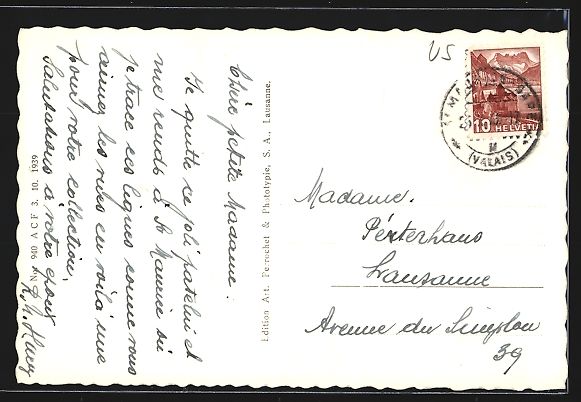 Chère petite Madame.
Je quitte ce joli patelin et
me rends à St Maurice où
je trace ces lignes comme vous
aimez les vues en voilà une
pour votre collection,
Salutations à votre époux
N° 960 A C F 3. 10. 1939
Edition Art. Perrochet & Phototypie, S. A., Lausanne.
US
10 HELVETIA
(VALAIS)
Madame.
Lausanne
Avenue du Simplon
39